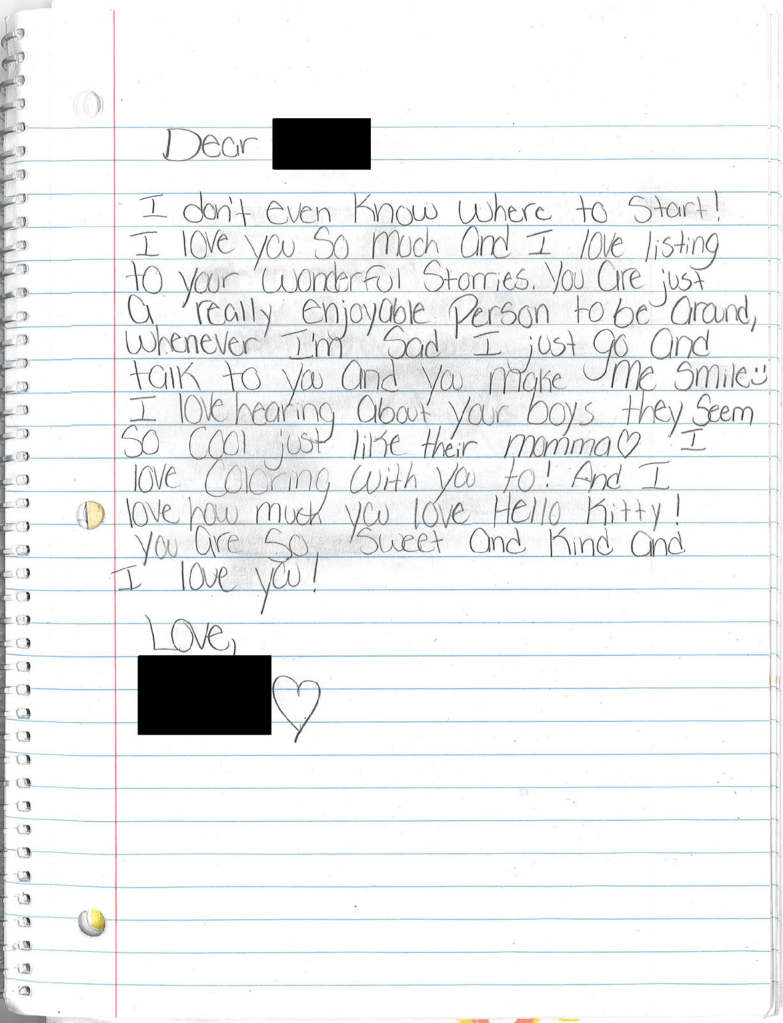 Dear
I don't even know where to start!
I love you so much and I love listing
to your wonderful storries. you are just
a really enjoyable person to be around,
whenever I'm sad I just go and
talk to you and you make me smile:)
I love hearing about your boys they seem
so cool just like their momma♡ I
love coloring with you to! And I
love how much you love Hello Kitty!
you are so, sweet and kind and
I love you!
Love,
♡